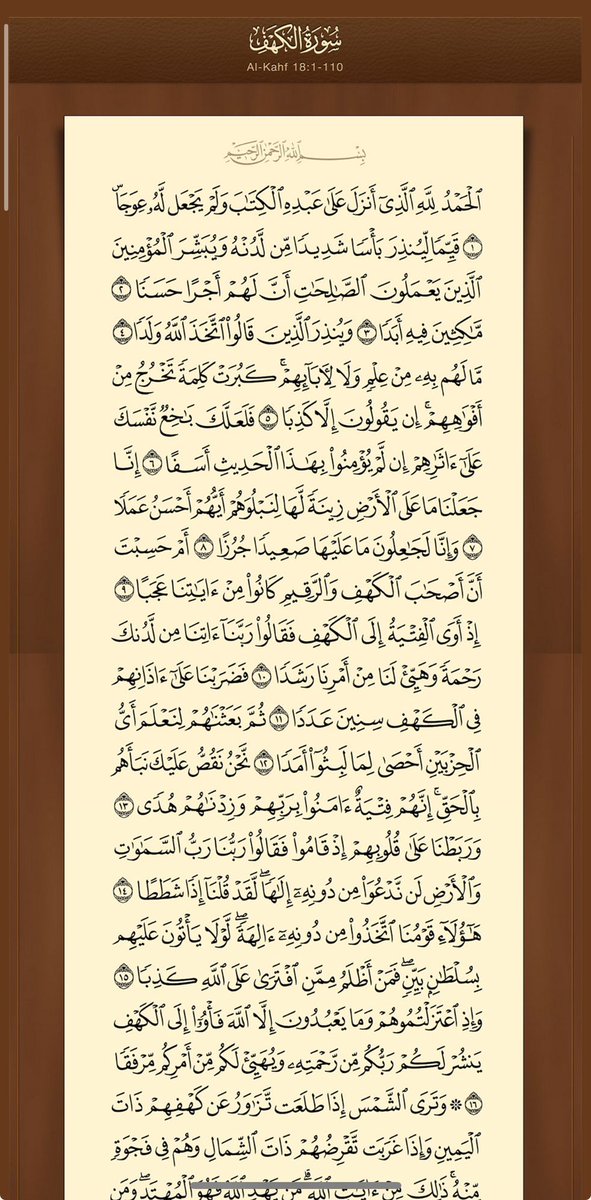 سُورَةُ الكَهۡفِ
Al-Kahf 18:1-110
بِسۡمِ ٱللَّهِ ٱلرَّحۡمَٰنِ ٱلرَّحِيمِ
ٱلۡحَمۡدُ لِلَّهِ ٱلَّذِيٓ أَنزَلَ عَلَىٰ عَبۡدِهِ ٱلۡكِتَٰبَ وَلَمۡ يَجۡعَل لَّهُۥ عِوَجَاۜ
١ قَيِّمٗا لِّيُنذِرَ بَأۡسٗا شَدِيدٗا مِّن لَّدُنۡهُ وَيُبَشِّرَ ٱلۡمُؤۡمِنِينَ
ٱلَّذِينَ يَعۡمَلُونَ ٱلصَّٰلِحَٰتِ أَنَّ لَهُمۡ أَجۡرًا حَسَنٗا ٢
مَّٰكِثِينَ فِيهِ أَبَدٗا ٣ وَيُنذِرَ ٱلَّذِينَ قَالُواْ ٱتَّخَذَ ٱللَّهُ وَلَدٗا ٤
مَّا لَهُم بِهِۦ مِنۡ عِلۡمٖ وَلَا لِأٓبَآئِهِمۡۚ كَبُرَتۡ كَلِمَةٗ تَخۡرُجُ مِنۡ
أَفۡوَٰهِهِمۡۚ إِن يَقُولُونَ إِلَّا كَذِبٗا ٥ فَلَعَلَّكَ بَٰخِعٞ نَّفۡسَكَ
عَلَىٰٓ ءَاثَٰرِهِمۡ إِن لَّمۡ يُؤۡمِنُواْ بِهَٰذَا ٱلۡحَدِيثِ أَسَفًا ٦ إِنَّا
جَعَلۡنَا مَا عَلَى ٱلۡأَرۡضِ زِينَةٗ لَّهَا لِنَبۡلُوَهُمۡ أَيُّهُمۡ أَحۡسَنُ عَمَلٗا
٧ وَإِنَّا لَجَٰعِلُونَ مَا عَلَيۡهَا صَعِيدٗا جُرُزًا ٨ أَمۡ حَسِبۡتَ
أَنَّ أَصۡحَٰبَ ٱلۡكَهۡفِ وَٱلرَّقِيمِ كَانُواْ مِنۡ ءَايَٰتِنَا عَجَبًا ٩
إِذۡ أَوَى ٱلۡفِتۡيَةُ إِلَى ٱلۡكَهۡفِ فَقَالُواْ رَبَّنَآ ءَاتِنَا مِن لَّدُنكَ
رَحۡمَةٗ وَهَيِّئۡ لَنَا مِنۡ أَمۡرِنَا رَشَدٗا ١٠ فَضَرَبۡنَا عَلَىٰٓ ءَاذَانِهِمۡ
فِي ٱلۡكَهۡفِ سِنِينَ عَدَدٗا ١١ ثُمَّ بَعَثۡنَٰهُمۡ لِنَعۡلَمَ أَيُّ
ٱلۡحِزۡبَيۡنِ أَحۡصَىٰ لِمَا لَبِثُوٓاْ أَمَدٗا ١٢ نَّحۡنُ نَقُصُّ عَلَيۡكَ نَبَأَهُم
بِٱلۡحَقِّۚ إِنَّهُمۡ فِتۡيَةٌ ءَامَنُواْ بِرَبِّهِمۡ وَزِدۡنَٰهُمۡ هُدٗى ١٣
وَرَبَطۡنَا عَلَىٰ قُلُوبِهِمۡ إِذۡ قَامُواْ فَقَالُواْ رَبُّنَا رَبُّ ٱلسَّمَٰوَٰتِ
وَٱلۡأَرۡضِ لَن نَّدۡعُوَاْ مِن دُونِهِۦٓ إِلَٰهٗاۖ لَّقَدۡ قُلۡنَآ إِذٗا شَطَطًا ١٤
هَٰٓؤُلَآءِ قَوۡمُنَا ٱتَّخَذُواْ مِن دُونِهِۦٓ ءَالِهَةٗۖ لَّوۡلَا يَأۡتُونَ عَلَيۡهِم
بِسُلۡطَٰنِۭ بَيِّنٖۖ فَمَنۡ أَظۡلَمُ مِمَّنِ ٱفۡتَرَىٰ عَلَى ٱللَّهِ كَذِبٗا ١٥
وَإِذِ ٱعۡتَزَلۡتُمُوهُمۡ وَمَا يَعۡبُدُونَ إِلَّا ٱللَّهَ فَأۡوُۥٓاْ إِلَى ٱلۡكَهۡفِ
يَنشُرۡ لَكُمۡ رَبُّكُم مِّن رَّحۡمَتِهِۦ وَيُهَيِّئۡ لَكُم مِّنۡ أَمۡرِكُم مِّرۡفَقٗا
١٦ ۞ وَتَرَى ٱلشَّمۡسَ إِذَا طَلَعَت تَّزَٰوَرُ عَن كَهۡفِهِمۡ ذَاتَ
ٱلۡيَمِينِ وَإِذَا غَرَبَت تَّقۡرِضُهُمۡ ذَاتَ ٱلشِّمَالِ وَهُمۡ فِي فَجۡوَةٖ
مِّنۡهُۚ ذَٰلِكَ مِنۡ ءَايَٰتِ ٱللَّهِۗ مَن يَهۡدِ ٱللَّهُ فَهُوَ ٱلۡمُهۡتَدِۖ وَمَن